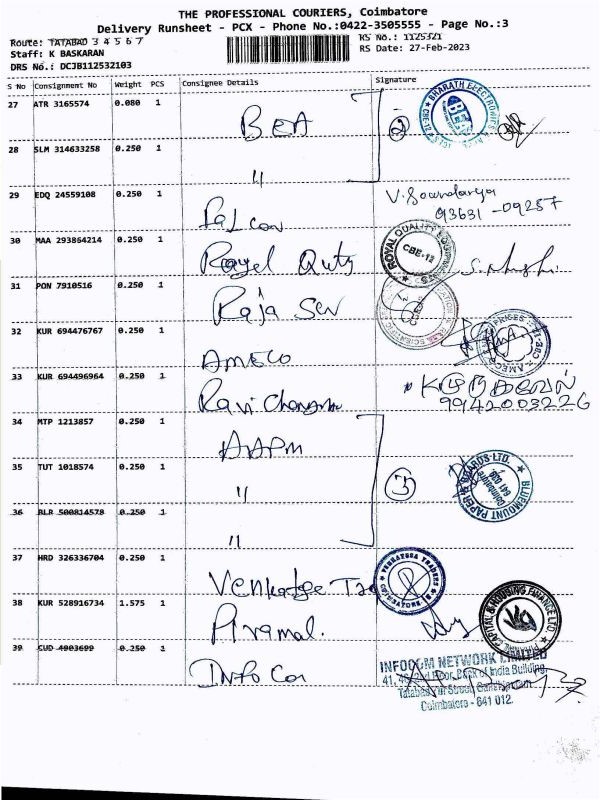 THE PROFESSIONAL COURIERS, Coimbatore
Delivery Runsheet - PCX - Phone No.:0422-3505555 - Page No.:3
Route: TATABAD 3 4 5 6 7
RS No.: 1125321
Staff: K BASKARAN
RS Date: 27-Feb-2023
DRS No.: DCJB112532103
S No Consignment No Weight PCS Consignee Details Signature
27 ATR 3165574 0.080 1 BEA 2 BHARATH ELECTRONICS
28 SLM 314633258 0.250 1 "
29 EDQ 24559108 0.250 1 Falcon V. Soundarya
93631-09257
30 MAA 293864214 0.250 1 Royal Quty ROYAL QUALITY CBE-12
31 PON 7910516 0.250 1 Raja Sen
32 KUR 694476767 0.250 1 AMECO
33 KUR 694496964 0.250 1 Ravi
9942003226
34 MTP 1213857 0.250 1 AAPM
35 TUT 1018574 0.250 1 " 3 BLUEMOUNT PAPER & BOARDS LTD.
36 BLR 500814578 0.250 1 "
37 HRD 326336704 0.250 1 VENKATESA TRADERS COIMBATORE
38 KUR 528916734 1.575 1 Piramal. CAPITAL & HOUSING FINANCE LTD.
39 CUD 4903699 0.250 1 INFO Com
INFOCOM NETWORK LIMITED
2nd Floor, Bank of India Building,
Tatabad Street,
Coimbatore - 641 012.